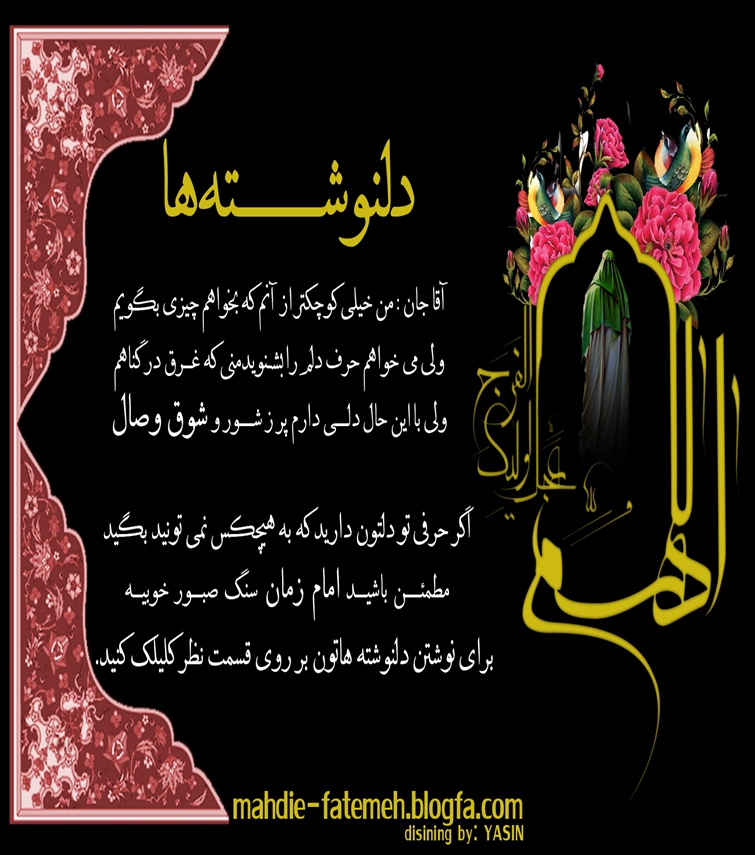 دلنوشته‌ها
آقا جان : من خیلی کوچکتر از آنم که بخواهم چیزی بگویم
ولی می خواهم حرف دلم را بشنوید منی که غرق در گناهم
ولی با این حال دلی دارم پر ز شور و شوق وصال
اگر حرفی تو دلتون دارید که به هیچکس نمی تونید بگید
مطمئن باشید امام زمان سنگ صبور خوبیه
برای نوشتن دلنوشته هاتون بر روی قسمت نظر کلیلک کنید.
اللهم عجل لولیک الفرج
mahdie-fatemeh.blogfa.com
disining by: YASIN